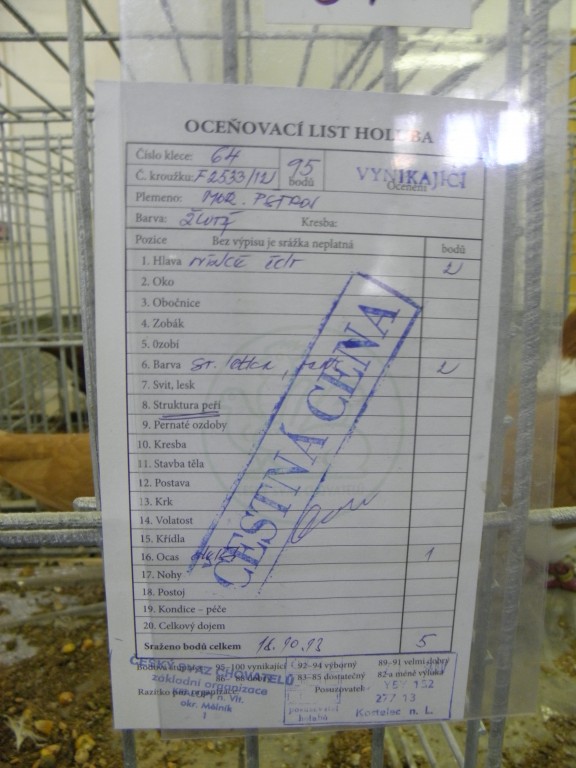 OCEŇOVACÍ LIST HOLUBA
Číslo klece: 64
95 bodů
VYNIKAJÍCÍ
Ocenění
Č. kroužku: F2533/12
Plemeno:
Barva: ŽLUTÝ Kresba:
Pozice Bez výpisu je srážka neplatná bodů
1. Hlava 2
2. Oko
3. Obočnice
4. Zobák
5. Ozobí
6. Barva 2
7. Svit, lesk
8. Struktura peří
9. Pernaté ozdoby
10. Kresba
11. Stavba těla
12. Postava
13. Krk
14. Volatost
15. Křídla
16. Ocas 1
17. Nohy
18. Postoj
19. Kondice – péče
20. Celkový dojem
Sraženo bodů celkem 5
ČESTNÁ CENA
95–100 vynikající 92–94 výborný 89–91 velmi dobrý
83–85 dostatečný
Razítko Posuzovatel
ČESKÝ SVAZ CHOVATELŮ
základní organizace
okr. Mělník
1